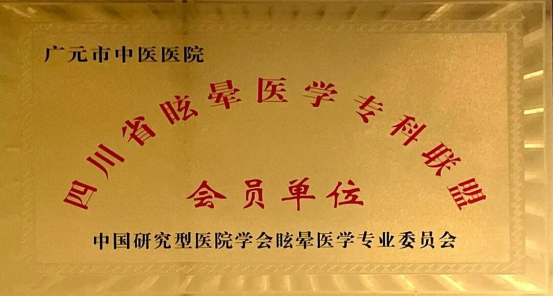 广元市中医医院
四川省眩晕医学专科联盟
会员单位
中国研究型医院学会眩晕医学专业委员会